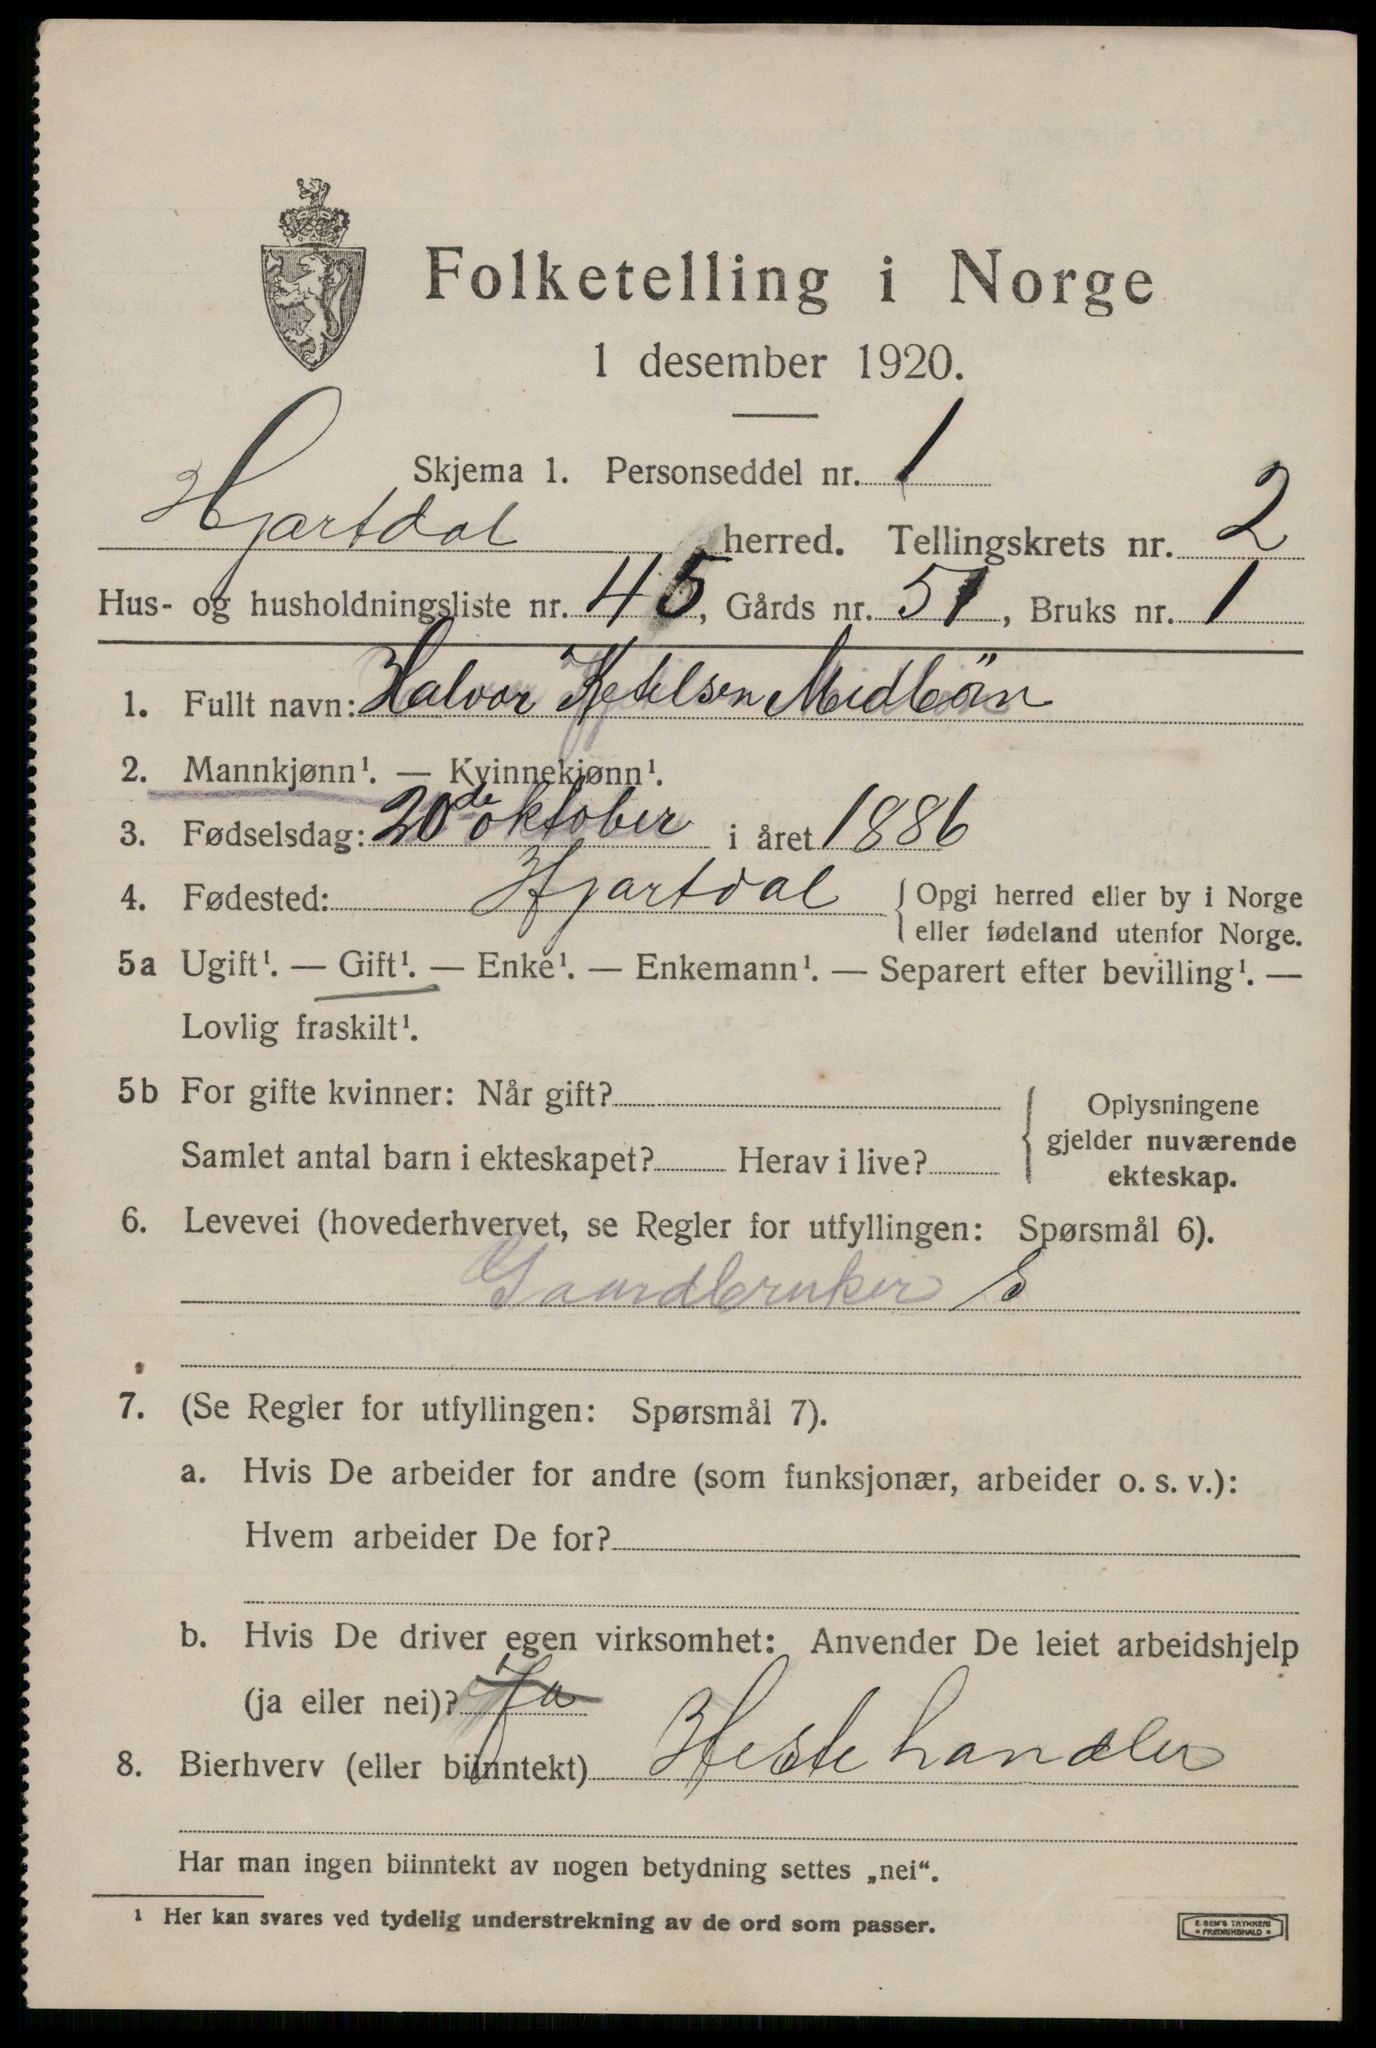 Folketelling i Norge
1 desember 1920.
Skjema 1. Personseddel nr. 1
Hjartdal herred. Tellingskrets nr. 2
Hus- og husholdningsliste nr. 45, Gårds nr. 51, Bruks nr. 1
1. Fullt navn: Halvor Ketelsen Midbön
2. Mannkjønn¹. — Kvinnekjønn¹.
3. Fødselsdag: 20de oktober i året 1886
4. Fødested: Hjartdal { Opgi herred eller by i Norge
eller fødeland utenfor Norge.
5a Ugift¹. — Gift¹. — Enke¹. — Enkemann¹. — Separert efter bevilling¹. —
Lovlig fraskilt¹.
5b For gifte kvinner: Når gift?
Samlet antal barn i ekteskapet? Herav i live?
{ Oplysningene
gjelder nuværende
ekteskap.
6. Levevei (hovederhvervet, se Regler for utfyllingen: Spørsmål 6).
Gaardbruker S
7. (Se Regler for utfyllingen: Spørsmål 7).
a. Hvis De arbeider for andre (som funksjonær, arbeider o. s. v.):
Hvem arbeider De for?
b. Hvis De driver egen virksomhet: Anvender De leiet arbeidshjelp
(ja eller nei)? Ja
8. Bierhverv (eller biinntekt) Hestehandler
Har man ingen biinntekt av nogen betydning settes „nei“.
¹ Her kan svares ved tydelig understrekning av de ord som passer.
E. SEM'S TRYKKERI
FREDRIKSHALD